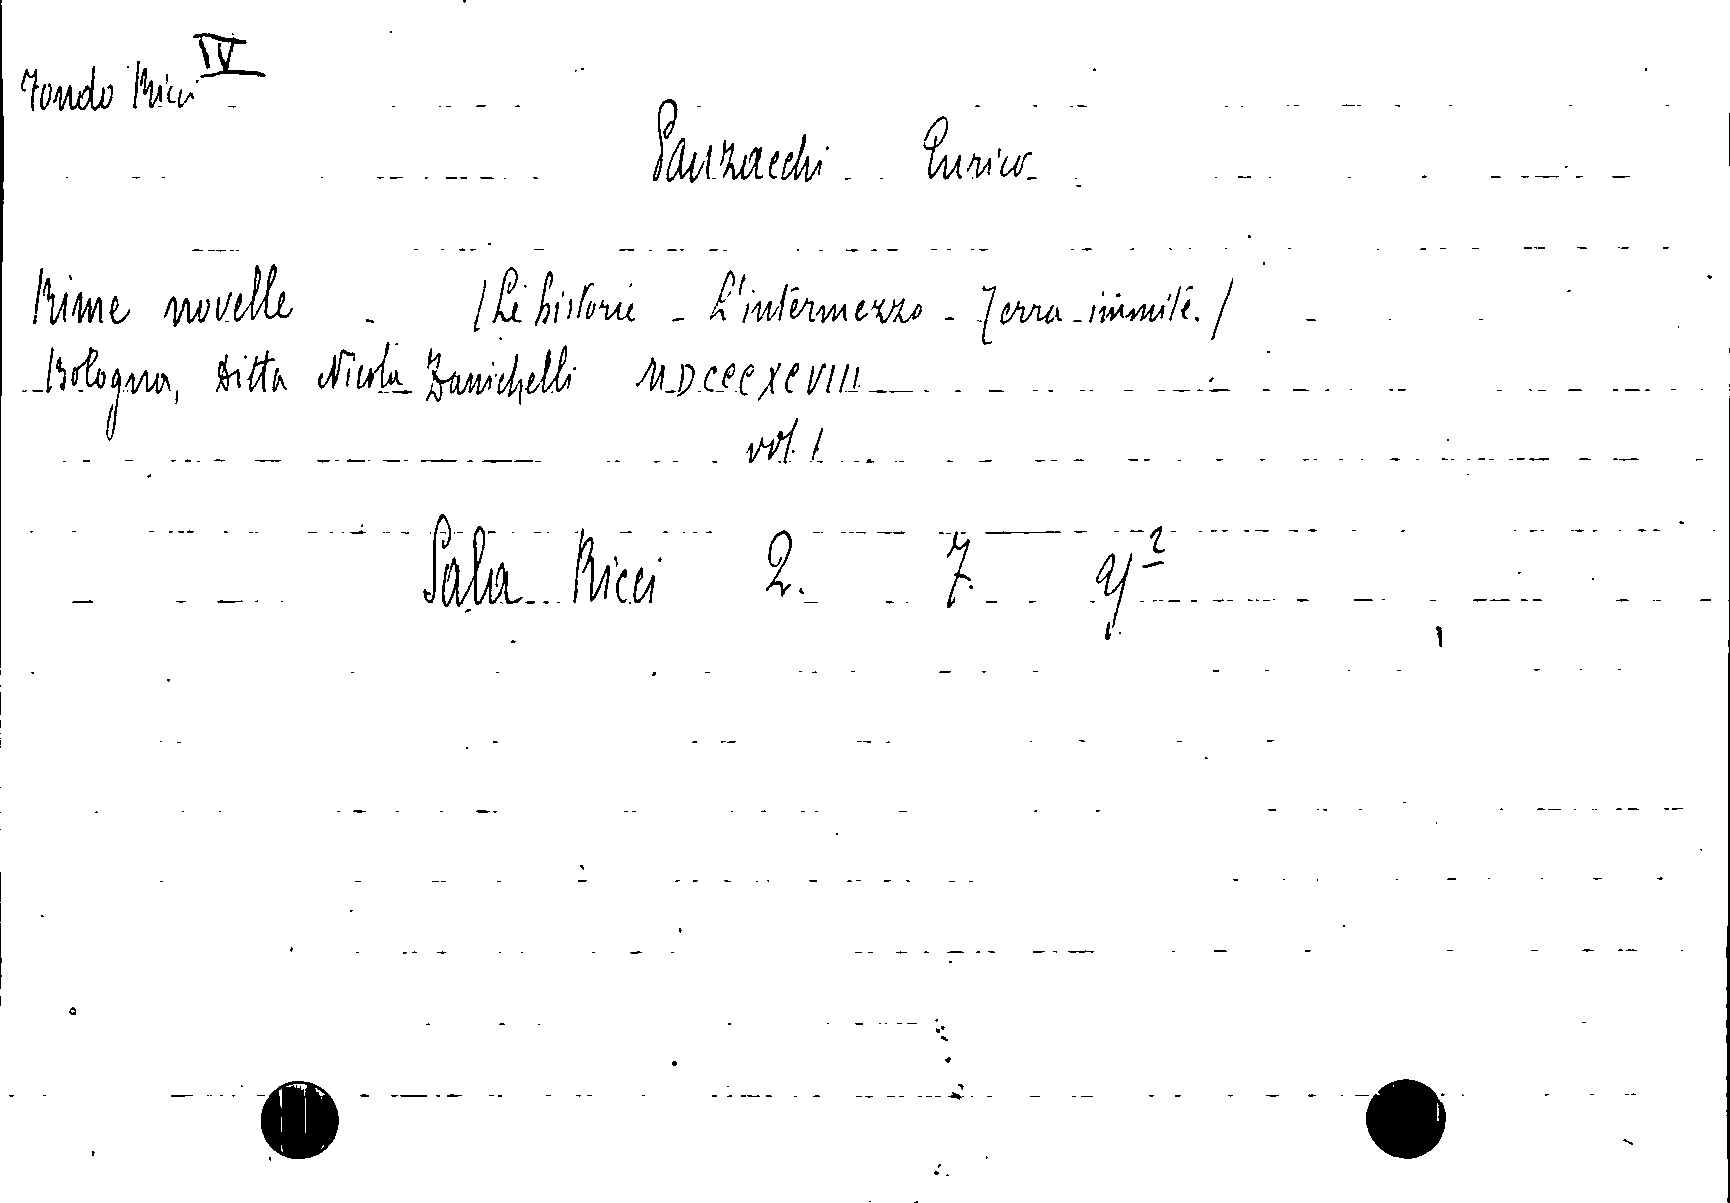 IV
Fondo Ricci
Panzacchi Enrico
Rime novelle - (Le historie - L'intermezzo - Terra immite.)
Bologna, Ditta Nicola Zanichelli MDCCCXCVIII
vol. 1
Sala Ricci 2. 7.